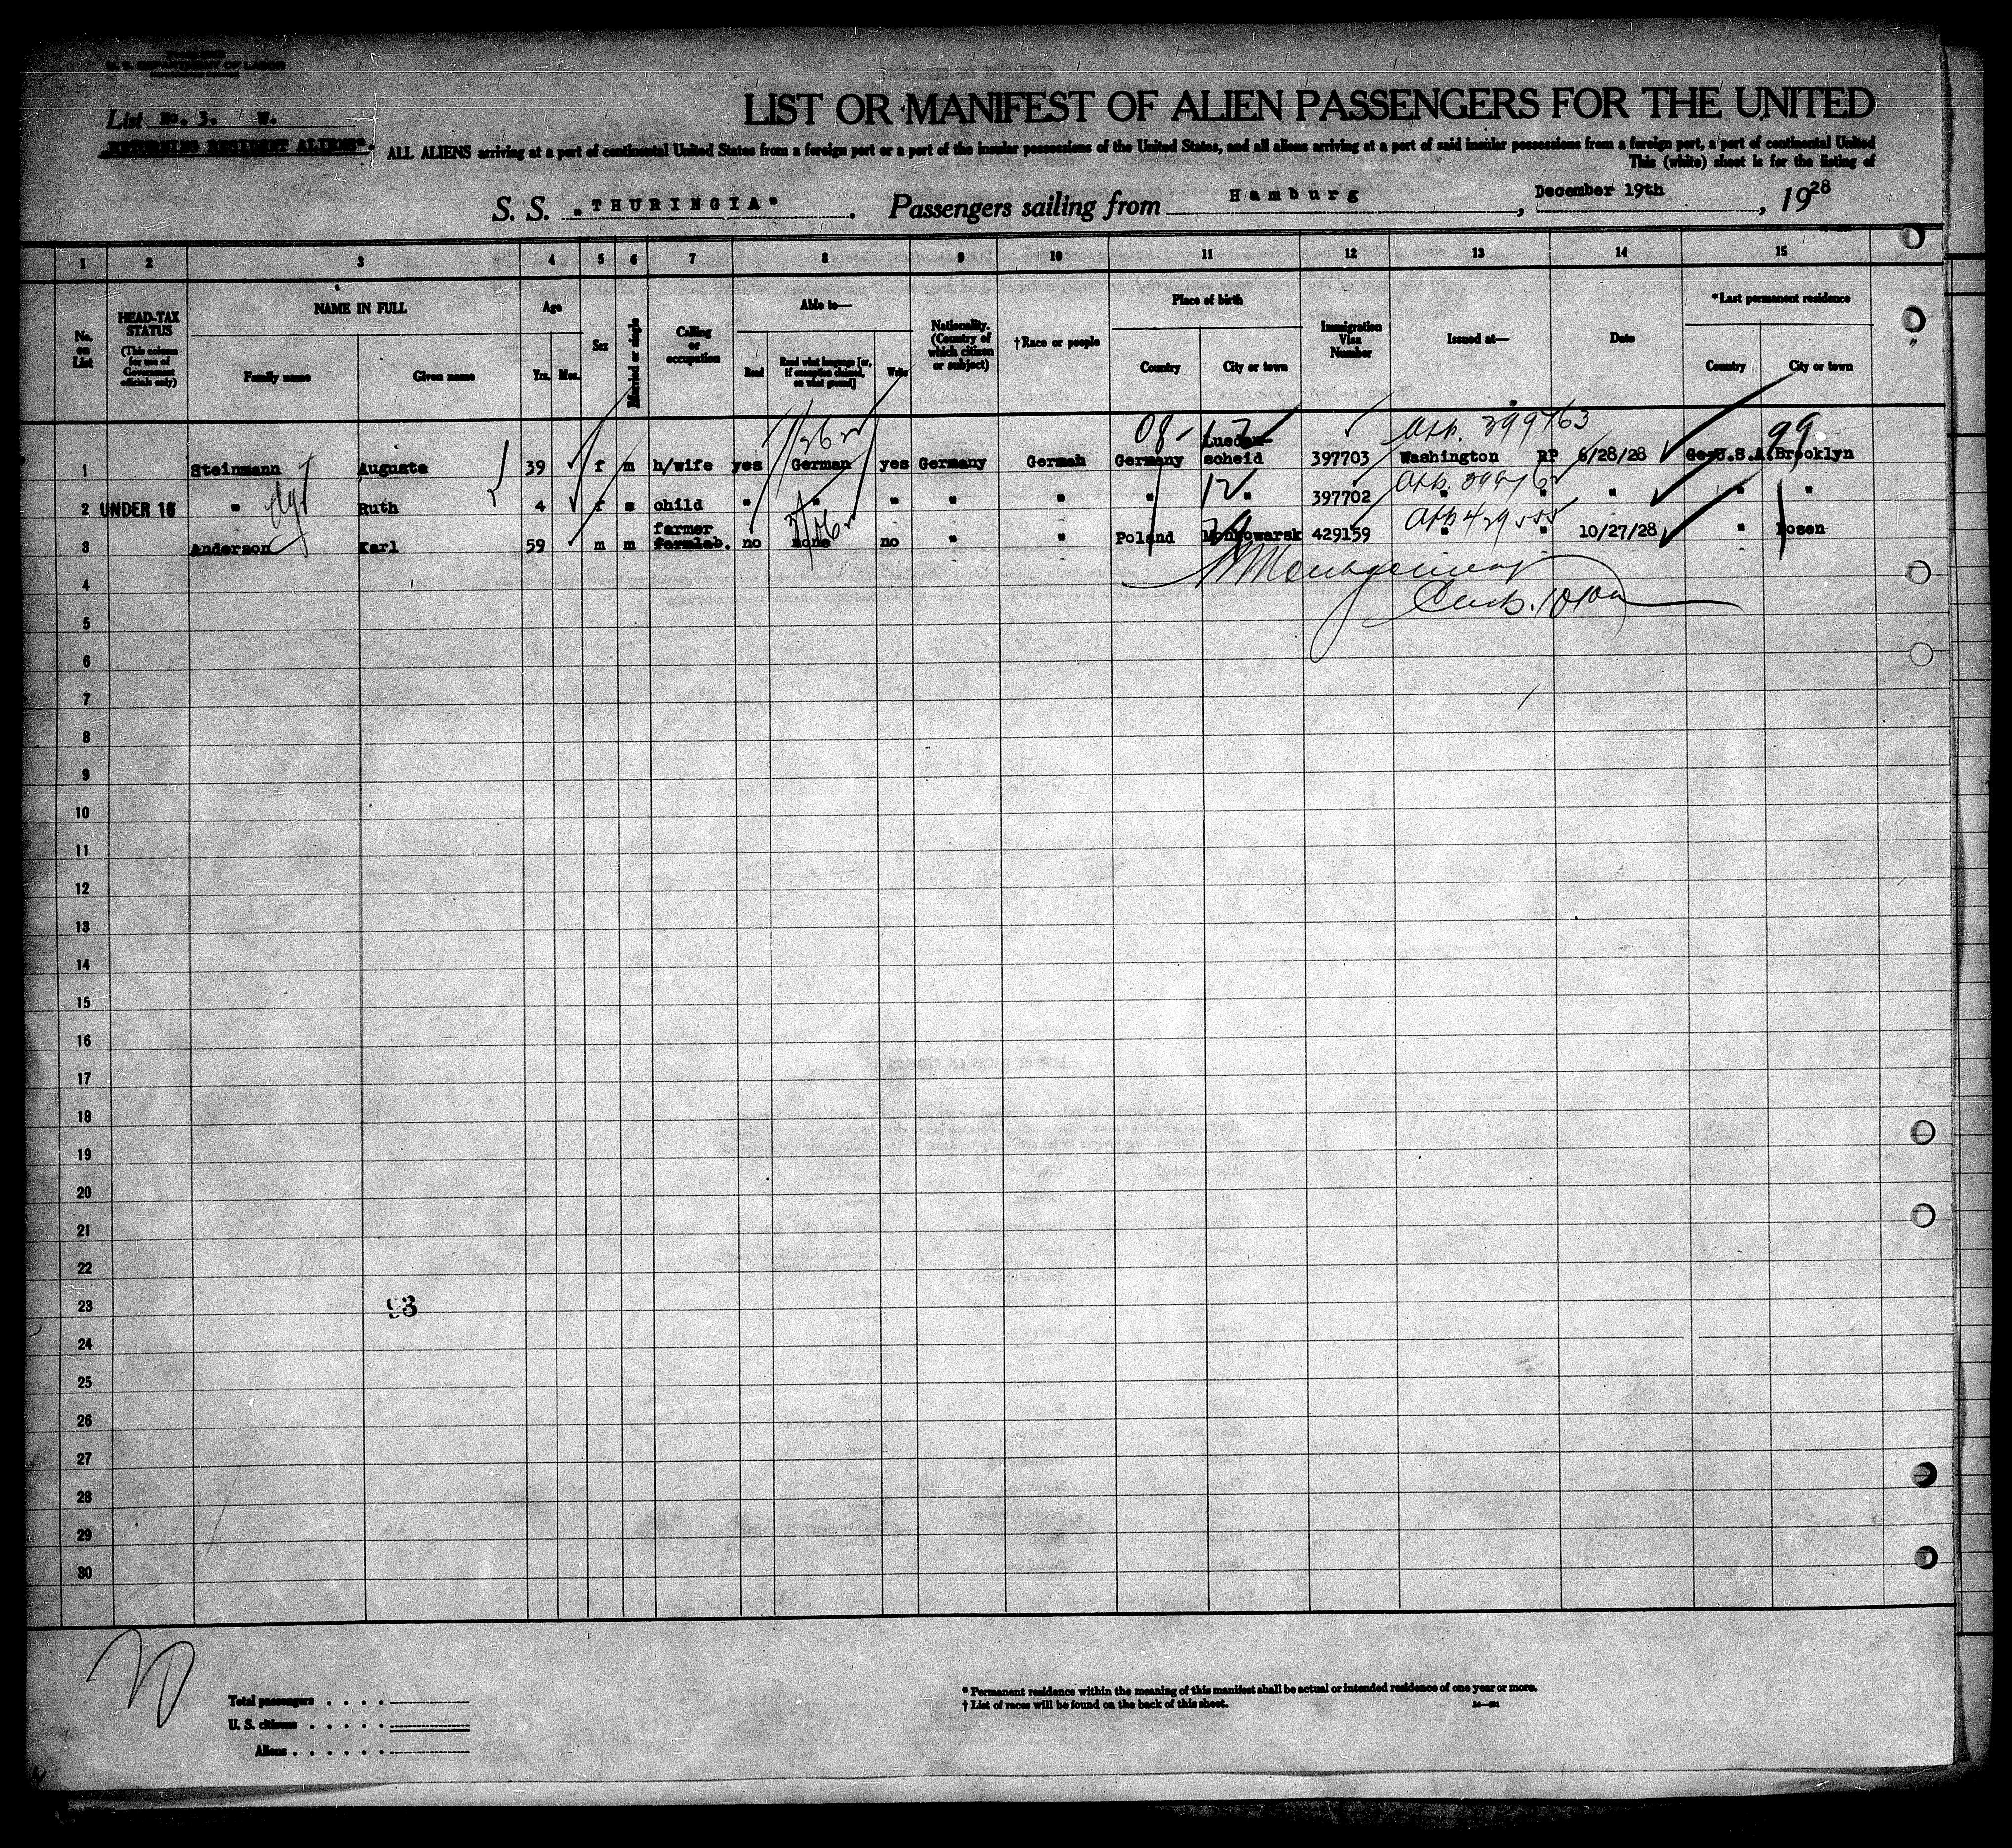 U. S. DEPARTMENT OF LABOR
List No. 3. W.
RETURNING RESIDENT ALIENS".
LIST OR MANIFEST OF ALIEN PASSENGERS FOR THE UNITED
ALL ALIENS arriving at a port of continental United States from a foreign port or a port of the insular possessions of the United States, and all aliens arriving at a port of said insular possessions from a foreign port, a port of continental United
This (white) sheet is for the listing of
S. S. "THURINGIA". Passengers sailing from Hamburg, December 19th, 1928
1 2 3 4 5 6 7 8 9 10 11 12 13 14 15
No. on List
HEAD-TAX STATUS
(This column for use of Government officials only)
NAME IN FULL
Family name Given name
Age
Yrs. Mos.
Sex
Married or single
Calling or occupation
Able to—
Read Read what language [or, if exemption claimed, on what ground] Write
Nationality. (Country of which citizen or subject)
†Race or people
Place of birth
Country City or town
Immigration Visa Number
Issued at—
Date
*Last permanent residence
Country City or town
08- 12 99
1 Steinmann Auguste 39 f m h/wife yes German yes Germany German Germany Luedenscheid 397703 Washington RP 6/28/28 U.S.A. Brooklyn
12
2 UNDER 16 " Ruth 4 f s child " " " " " " " 397702 " " " " "
farmer
3 Anderson Karl 59 m m farmlab. no none no " " Poland 429159 " " 10/27/28 " Posen
4
5
6
7
8
9
10
11
12
13
14
15
16
17
18
19
20
21
22
23
24
25
26
27
28
29
30
93
Total passengers . . . .
U. S. citizens . . . . .
Aliens . . . . . .
* Permanent residence within the meaning of this manifest shall be actual or intended residence of one year or more.
† List of races will be found on the back of this sheet.